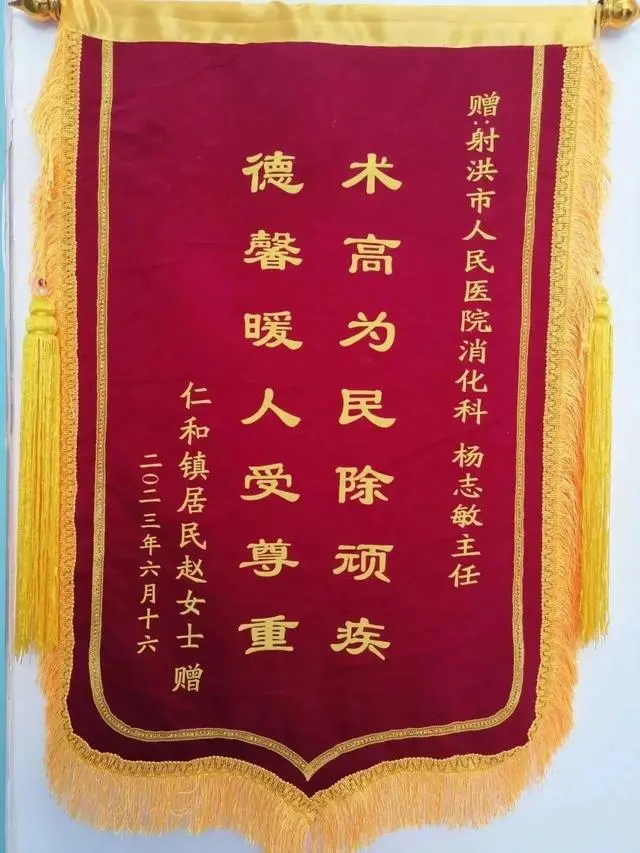 赠:射洪市人民医院消化科 杨志敏主任
术高为民除顽疾
德馨暖人受尊重
仁和镇居民赵女士 赠
二〇二三年六月十六